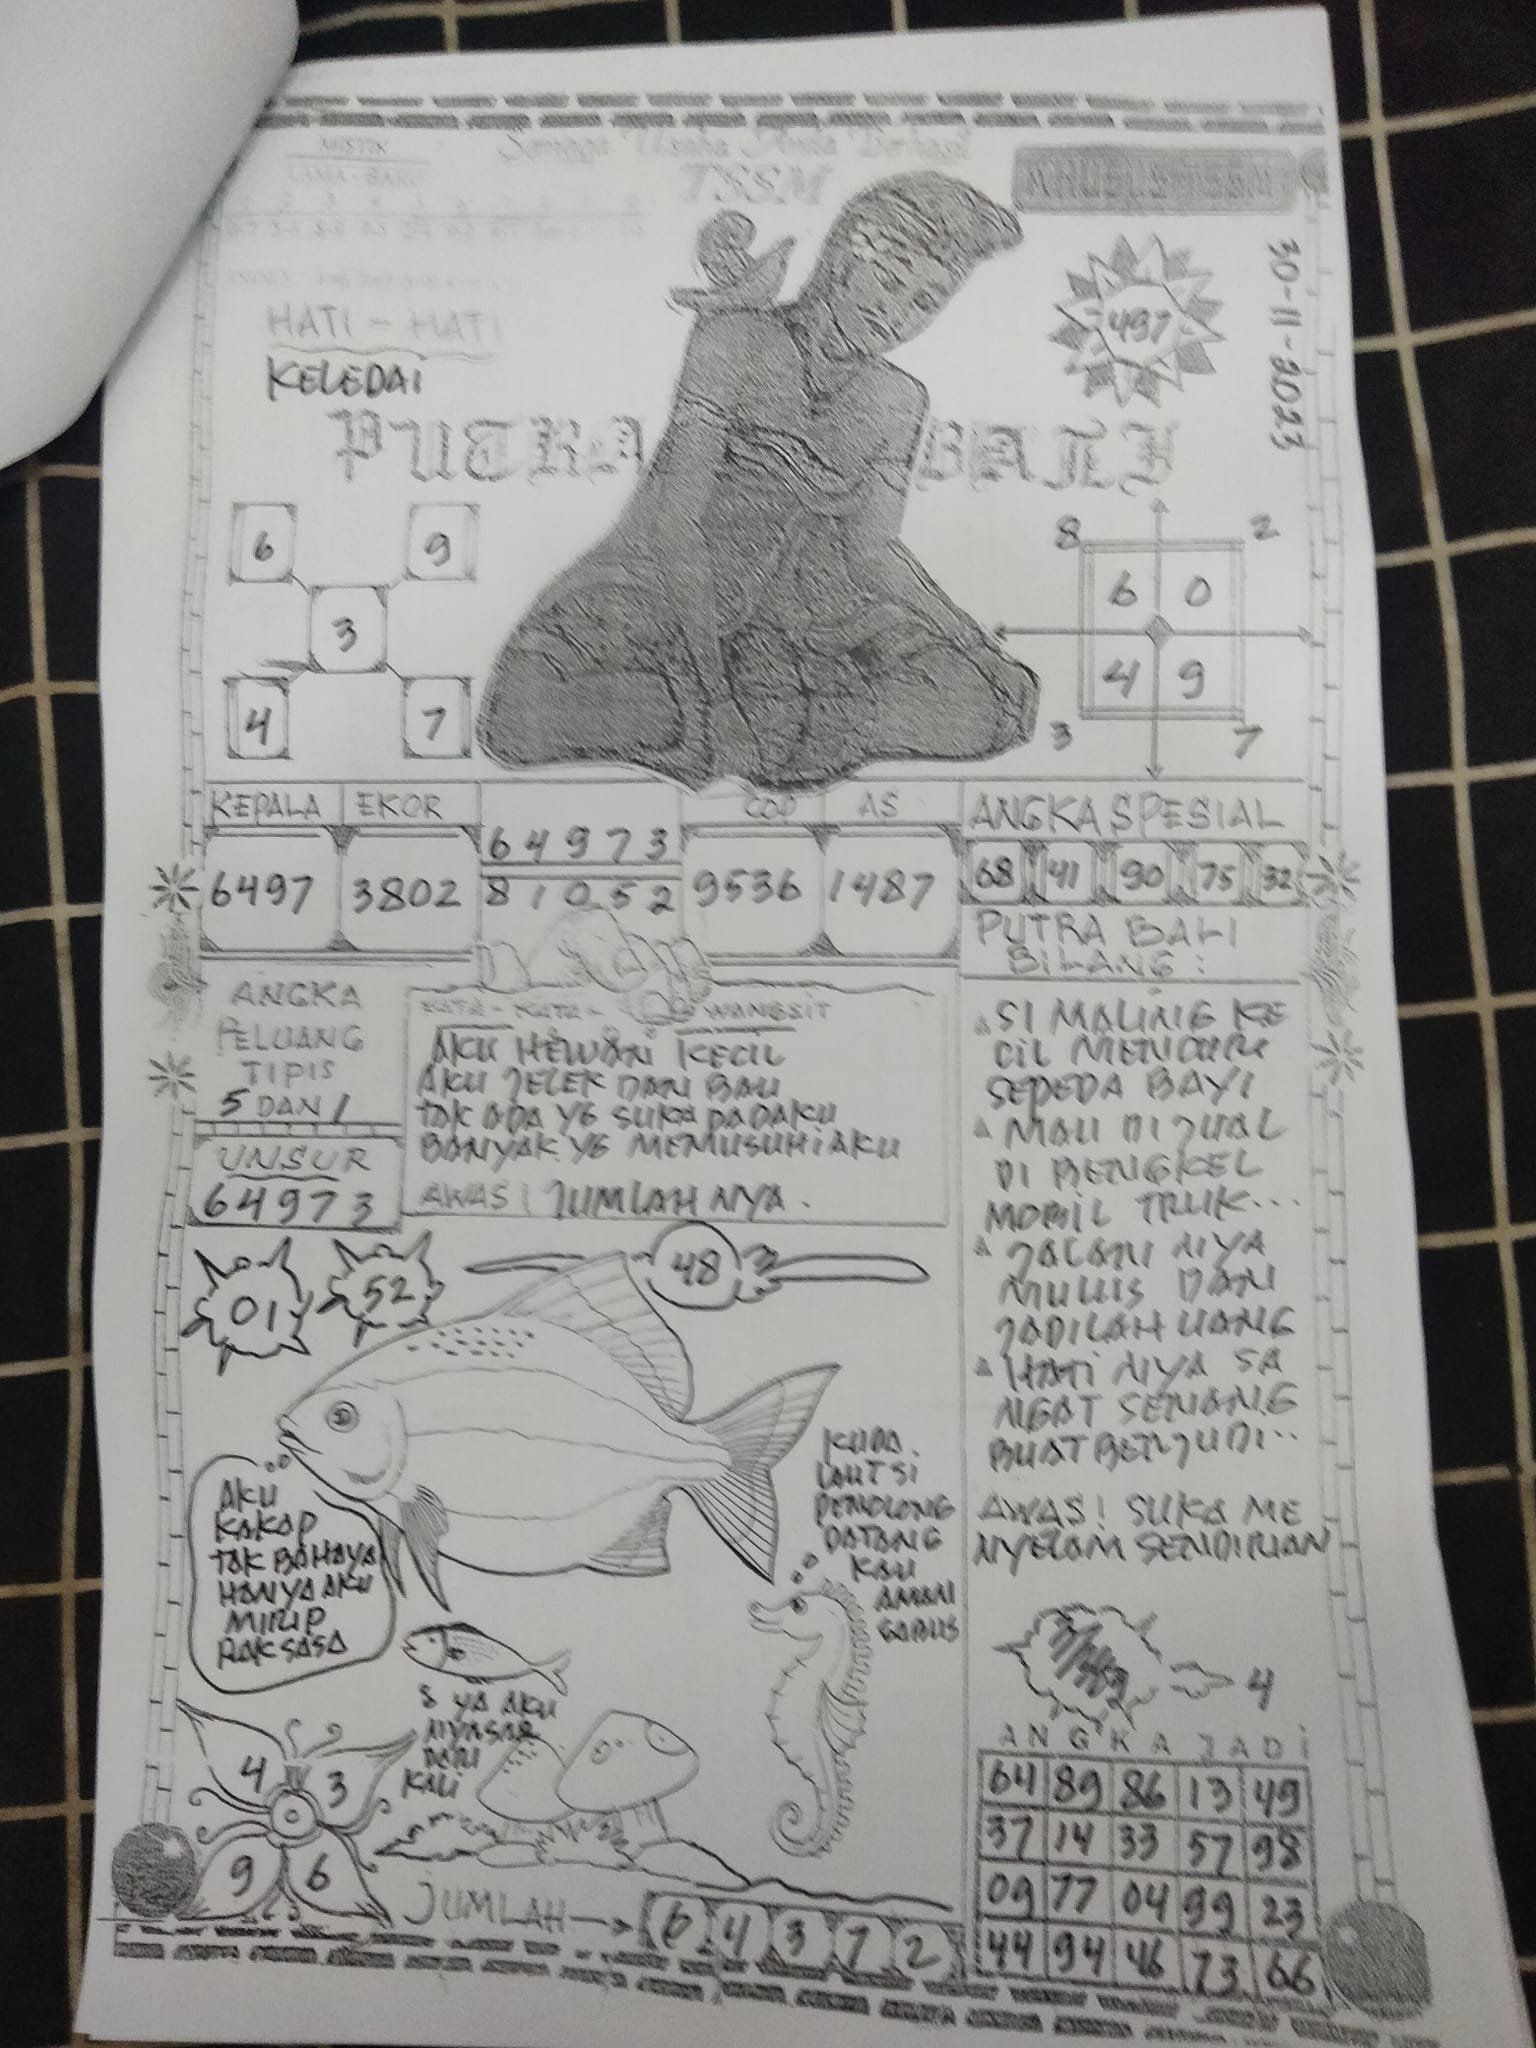 MISTIK
LAMA - BARU
Semoga Usaha Anda Berhasil
TSSM
30-11-2023
HATI - HATI
KELEDAI
497
PUTRA BALI
6 9
3
4 7
8 2
6 0
4 9
3 7
KEPALA EKOR
6497 3802
64973
81052
COP AS
9536 1487
ANGKA SPESIAL
68 41 90 75 32
ANGKA
PELUANG
TIPIS
5 DAN 1
UNSUR
64973
KATA - KATA - WANGSIT
AKU HEWAN KECIL
AKU JELEK DAN BAU
TAK ADA YG SUKA PADAKU
BANYAK YG MEMUSUHI AKU
AWAS! JUMLAH NYA.
PUTRA BALI
BILANG:
SI MALING KE
CIL MENCURI
SEPEDA BAYI
MAU DI JUAL
DI BENGKEL
MOBIL TRUK...
JALAN NYA
MULUS DAN
JADILAH UANG
HATI NYA SA
NGAT SENANG
BUAT BERJUDI..
AWAS! SUKA ME
NYELAM SENDIRIAN
01 52 48
AKU
KAKAP
TAK BAHAYA
HANYA AKU
MIRIP
RAKSASA
KUDA
LAUT SI
PENOLONG
DATANG
KAU
AMAN
GABUS
YA AKU
NYASAR
DARI
KALI
4 3
9 6
JUMLAH → 6 4 3 7 2
4
ANGKA JADI
64 89 86 13 49
37 14 33 57 98
09 77 04 99 23
44 94 46 73 66